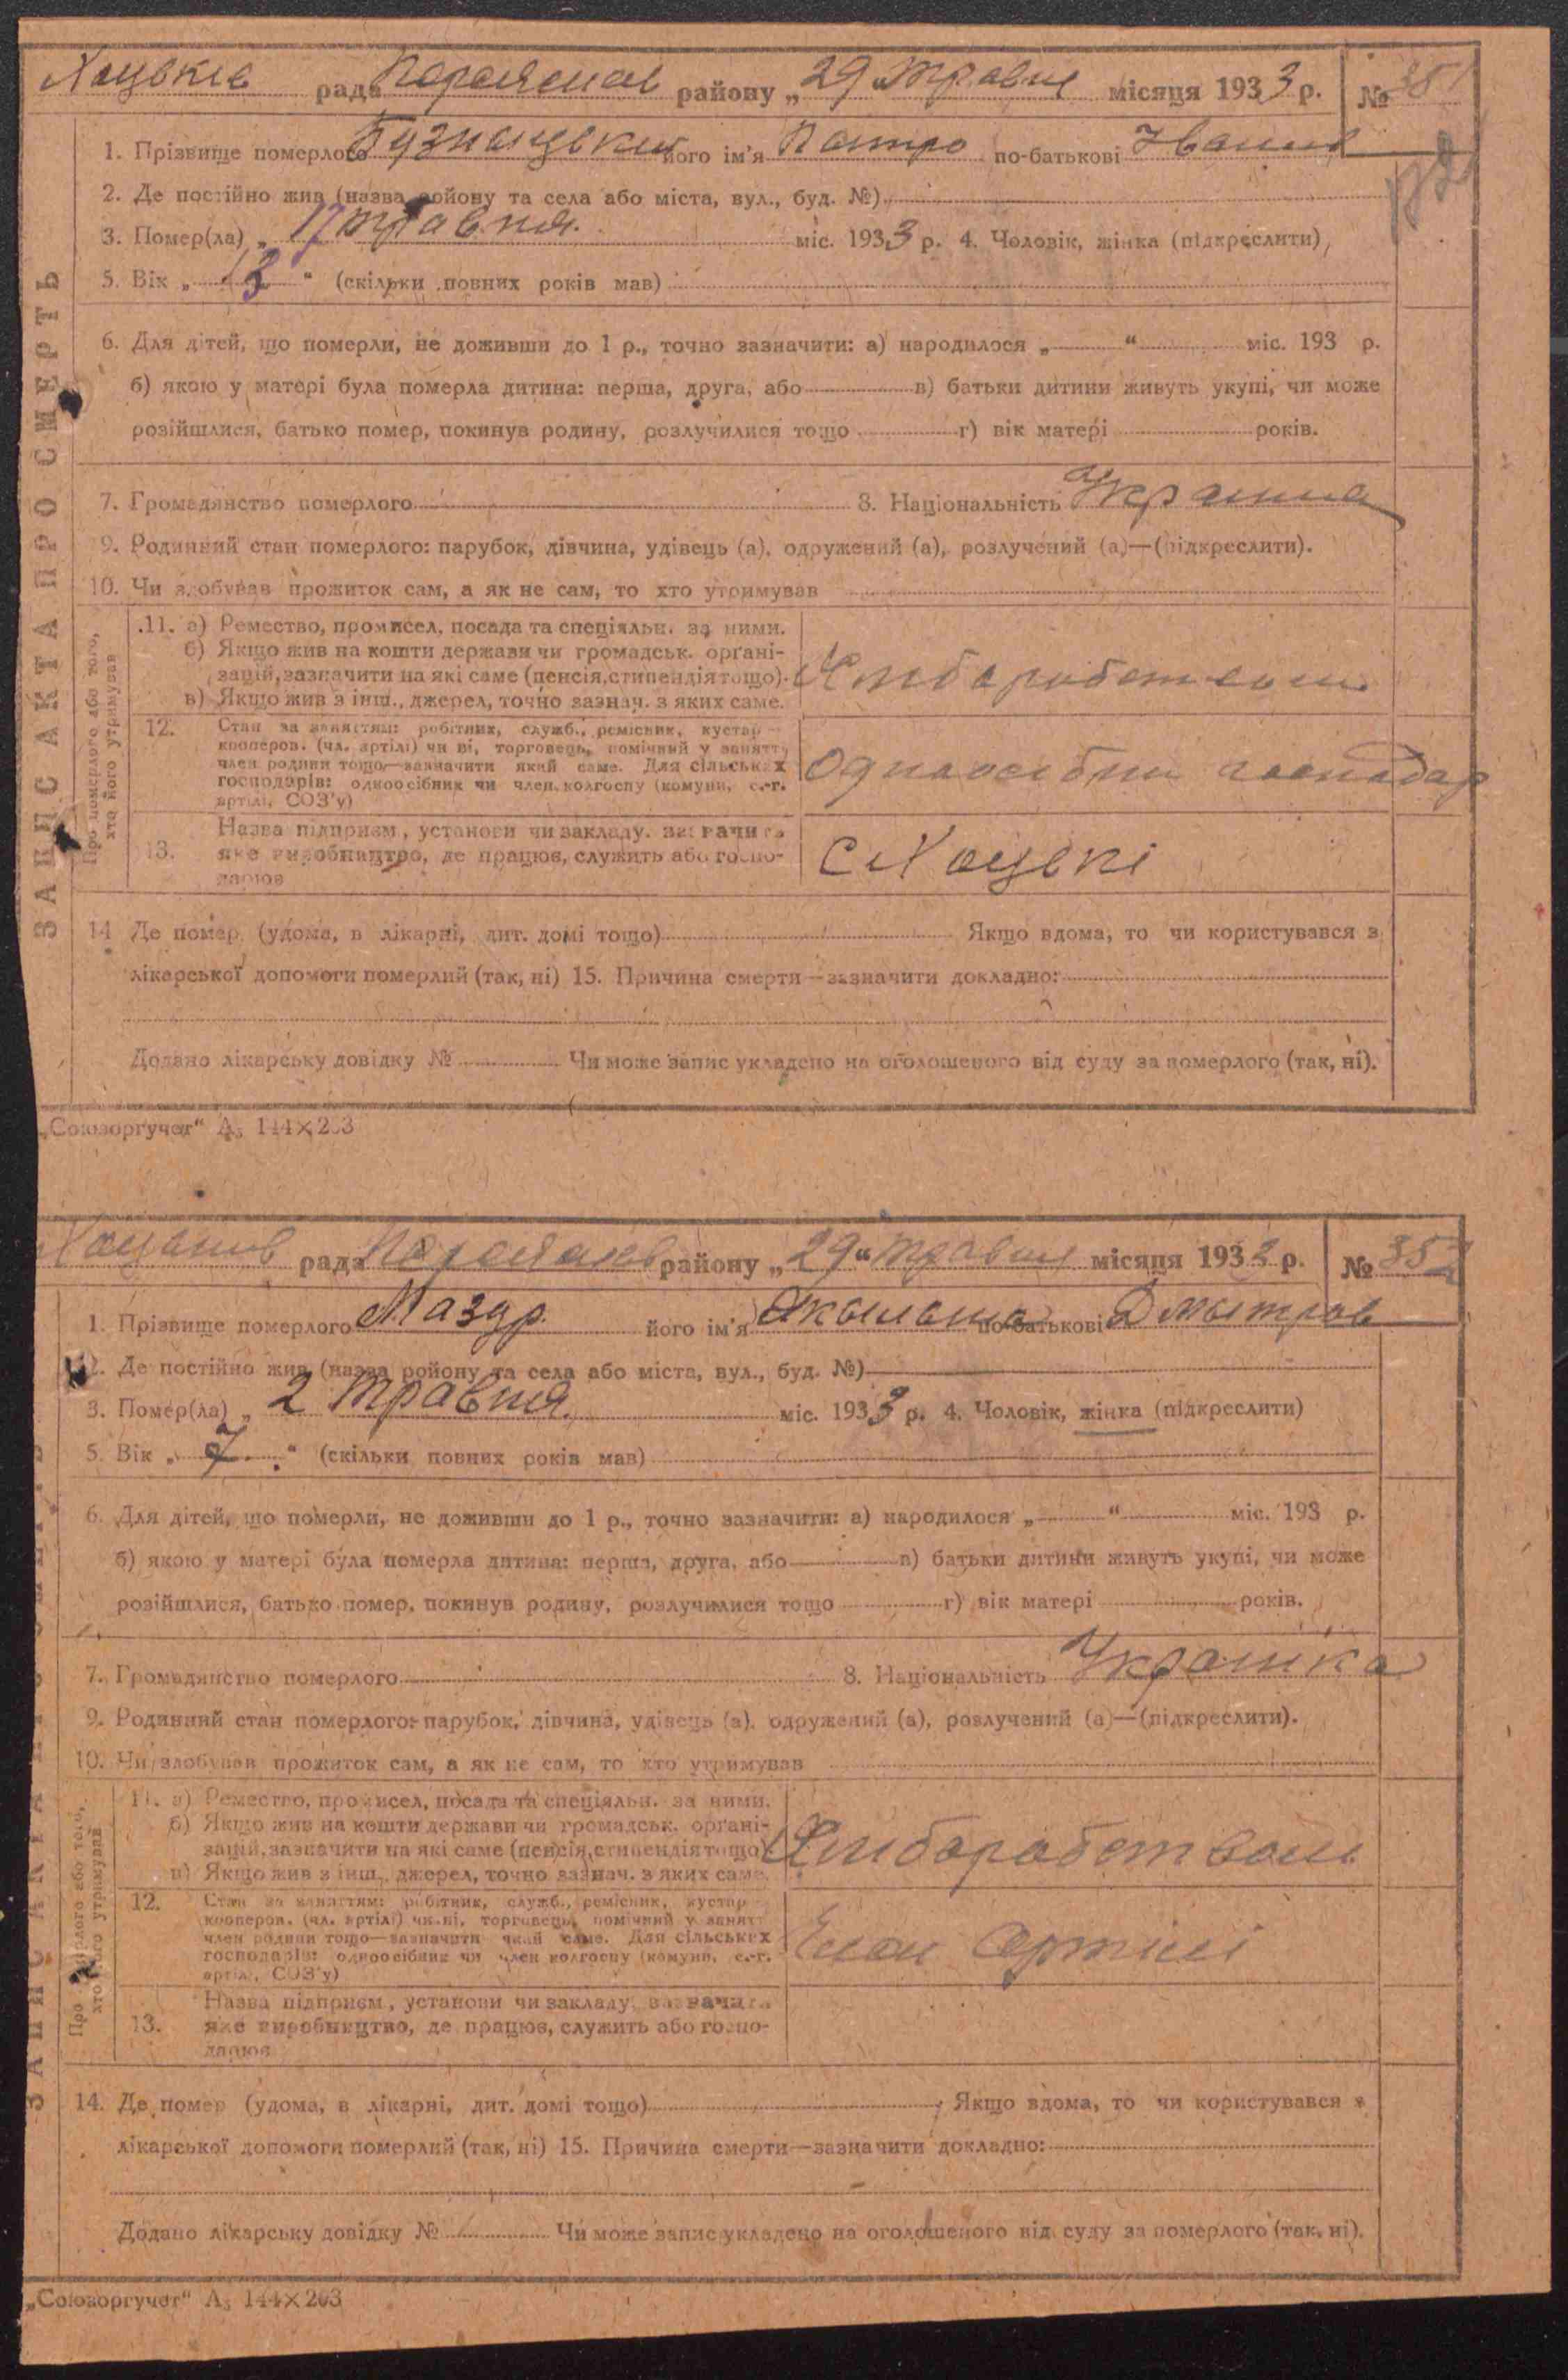 Хоцьків рада Переяслав району „29“ травня місяця 1933 р. № 351
1. Прізвище померлого його ім'я Петро по-батькові Іванів
2. Де постійно жив (назва ройону та села або міста, вул., буд. №)
3. Помер(ла) „ 17 травня міс. 1933 р. 4. Чоловік, жінка (підкреслити)
5. Вік „ 13 “ (скільки повних років мав)
6. Для дітей, що померли, не доживши до 1 р., точно зазначити: а) народилося „ “ міс. 193 р.
б) якою у матері була померла дитина: перша, друга, або в) батьки дитини живуть укупі, чи може
розійшлися, батько помер, покинув родину, розлучилися тощо г) вік матері років.
7. Громадянство померлого 8. Національність
9. Родинний стан померлого: парубок, дівчина, удівець (а), одружений (а), розлучений (а)—(підкреслити).
10. Чи здобував прожиток сам, а як не сам, то хто утримував
ЗАПИС АКТА ПРО СМЕРТЬ
Про померлого або того,
хто його утримував
11. а) Ремество, промисел, посада та спеціяльн. за ними.
б) Якщо жив на кошти держави чи громадськ. орґані-
зацій, зазначити на які саме (пенсія, стипендія тощо).
в) Якщо жив з інш., джерел, точно зазнач. з яких саме.
12. Стан за заняттям: робітник, служб., ремісник, кустар
кооперов. (чл. артілі) чи ні, торговець, помічний у занятт
член родини тощо—зазначити який саме. Для сільських
господарів: одноосібник чи член колгоспу (комуни, с.-г.
артілі, СОЗ'у)
Одноосібни господар
Назва підприєм, установи чи закладу, зазначити
13. яке виробництво, де працює, служить або госпо-
дарює
С Хоцькі
14 Де помер (удома, в лікарні, дит. домі тощо) Якщо вдома, то чи користувався з
лікарської допомоги померлий (так, ні) 15. Причина смерти—зазначити докладно:
Додано лікарську довідку № Чи може запис укладено на оголошеного від суду за померлого (так, ні).
„Союзоргучет“ А5 144×203
рада району „29“ травня місяця 1933 р. № 352
1. Прізвище померлого Мазур його ім'я по-батькові Дмытров
2. Де постійно жив (назва ройону та села або міста, вул., буд. №)
3. Помер(ла) „ 2 травня міс. 1933 р. 4. Чоловік, жінка (підкреслити)
5. Вік „ 7 “ (скільки повних років мав)
6. Для дітей, що померли, не доживши до 1 р., точно зазначити: а) народилося „ “ міс. 193 р.
б) якою у матері була померла дитина: перша, друга, або в) батьки дитини живуть укупі, чи може
розійшлися, батько помер, покинув родину, розлучилися тощо г) вік матері років.
7. Громадянство померлого 8. Національність Украінка
9. Родинний стан померлого: парубок, дівчина, удівець (а), одружений (а), розлучений (а)—(підкреслити).
10. Чи здобував прожиток сам, а як не сам, то хто утримував
11. а) Ремество, промисел, посада та спеціяльн. за ними.
б) Якщо жив на кошти держави чи громадськ. орґані-
зацій, зазначити на які саме (пенсія, стипендія тощо)
в) Якщо жив з інш., джерел, точно зазнач. з яких саме.
12. Стан за заняттям: робітник, служб., ремісник, кустар
кооперов. (чл. артілі) чи ні, торговець, помічний у занятт
член родини тощо—зазначити який саме. Для сільських
господарів: одноосібник чи член колгоспу (комуни, с.-г.
артілі, СОЗ'у)
Член Артілі
Назва підприєм, установи чи закладу, зазначити
13. яке виробництво, де працює, служить або госпо-
дарює
14. Де помер (удома, в лікарні, дит. домі тощо) Якщо вдома, то чи користувався з
лікарської допомоги померлий (так, ні) 15. Причина смерти—зазначити докладно:
Додано лікарську довідку № Чи може запис укладено на оголошеного від суду за померлого (так, ні).
„Союзоргучет“ А5 144×203